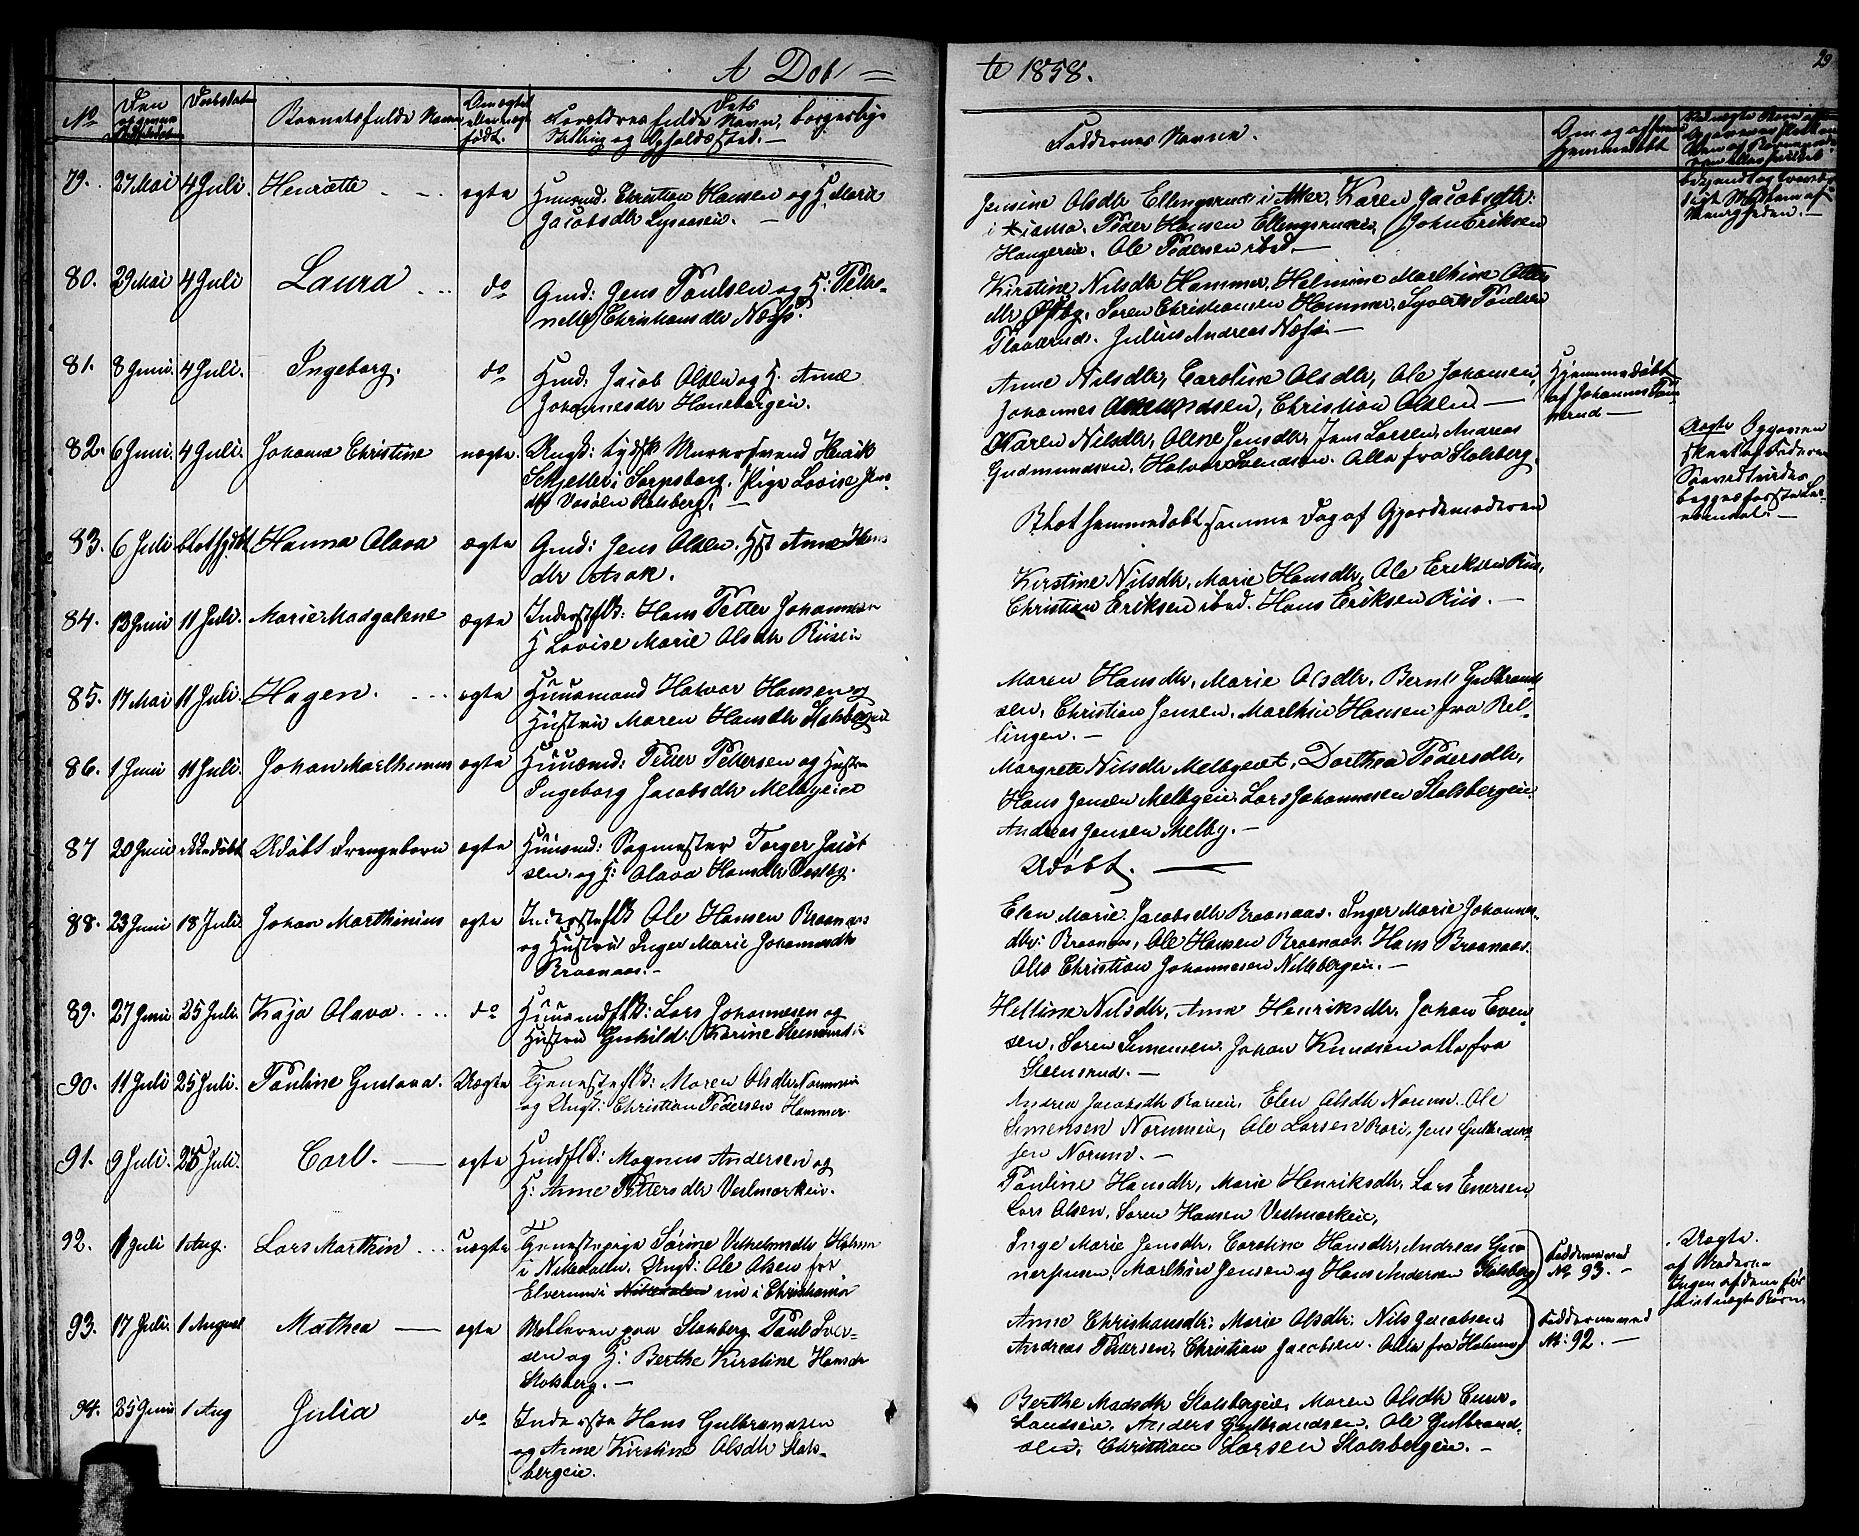 A Døb = te 1858.
29
No
Barnets fulde Navn
Faddernes Navne.
79. 27 Mai 4 Juli. Henriette - - ægte Huusmd. Christian Hansen og H. Marie
Jacobsdtr
Jensine Olsdtr Ellingsrud i Aker, Karen Jacobsdtr:
i Xiania. Peder Hansen Ellingsrudeie, John Eriksen
Ole Pedersen ibid. —
80. 29 Mai 4 Juli Laura - - do Gmd: Jens Poulsen og H: Petter-
nelle Christiansdtr Næss.
Kirstine Nilsdtr Hammer, Helmine Marthine
dtr Østby, Søren Christiansen Hammer, Syvert Poulsen
Julius Andreas Næss. —
81. 8 Juni. 4 Juli. Ingeborg. do Hmd: Jacob Olsen og H. Anne
Johannesdtr Hanebergeie.
Anne Nilsdtr, Caroline Olsdtr, Ole Johansen,
Johannes Amundsen, Christian Olsen —
Hjemmedøbt
af Johannes
82. 6 Juni. 4 Juli. Johanne Christine uægte. Ungk: tydsk Murersvend Henrik
i Sarpsborg. Pige Lovise Jens
dtr
Karen Nilsdtr, Oline Jensdtr, Jens Larsen, Andreas
Gudmundsen, Halvor Svendsen. Alle fra Stalsberg.
Uægte Opgiven
83. 6 Juli blot hjdbt Hanna Olava ægte Gmd: Jens Olsen. Hst Anne Hans
dtr Asak.
Blot hjemmedøbt samme Dag af Gjordemoderen
84. 13 Juni 11 Juli. Marie Madgalene ægte Inderstflk: Hans Petter Johannesen
H Lovise Marie Olsdtr Riiseie
Kirstine Nilsdtr, Marie Hansdtr, Ole Eriksen Riis,
Christian Eriksen ibid. Hans Eriksen Riis. —
85. 17 Mai 11 Juli. Hagen. - - ægte Huusmand Halvor Hansen og
Hustru Maren Hansdtr Stalsbergeie
Maren Hansdtr, Marie Olsdtr, Bernt Gulbrand-
sen, Christian Jensen, Marthin Hansen fra Rel-
lingen. —
86. 1 Juni 11 Juli. Johan Marthinius ægte Huusmd: Petter Pettersen og Hustru
Ingeborg Jacobsdtr Melbyeiet
Margrete Nilsdtr Melbyeiet, Dorthea Pedersdtr,
Hans Jensen Melbyeie. Lars Johannesen Stalsbergeie.
Andreas Jensen Melby. —
87 20 Juni ikkedøbt Udøbt Drengebarn ægte Huusmd: Sagmester Torger Jacob
sen, og H: Olava Hansdtr Vestby.
Udøbt. —
88. 23 Juni 18 Juli. Johan Marthinius ægte Indersteflk Ole Hansen Braanaas
og Hustru Inger Marie Johannesdtr
Braanaas. —
Elen Marie Jacobsdtr Braanaas. Inger Marie Johannes-
dtr: Braanaas, Ole Hansen Braanaas. Hans Braanaas.
Christian Johannesen Nittebergeie. —
89. 27 Juni 25 Juli. Kaja Olava. - - do Huusmandsflk: Lars Johannesen og
Hustru Gunhild Karine Steensrudeie
Helline Nilsdtr, Anne Henriksdtr, Johan Even-
sen, Søren Simensen, Johan Knudsen alle fra
Steensrud. —
90. 11 Juli 25 Juli. Pauline Gustava. Uægte Tjenesteflk: Maren Olsdtr
og Ungk: Christian Pedersen Hammer.
Andrea Jacobsdtr Elen Olsdtr Norum. Ole
Simensen Norumeie, Ole Larsen Jens Gulbrand-
sen Norum. —
91. 9 Juli. 25 Juli. Carl. — ægte Husmdflk: Magnus Andersen og
H: Anne Pettersdtr Vedmarkeie.
Pauline Hansdtr, Marie Henriksdtr, Lars Evensen
Lars Olsen, Søren Hansen Vedmarkeie,
92. 11 Juli 1 Aug. Lars Marthin - - uægte Tjenestepige Sørine Vilhelmsdtr
i Nittedalen. Ungk: Ole Olsen fra
Elverum i Nittedalen nu i Christiania
Inge Marie Jensdtr. Caroline Hansdtr, Andreas
Marthin Jensen og Hans Andersen Stalsberg
Faddere med
No 93. —
Uægte.
af Moderen
Ingen af dem før
havt uægte Børn
93. 17 Juli. 1 August Mathea — ægte Mølleren paa Stalsberg Paul Iver-
sen og H: Berthe Kirstine Hansdr
Stalsberg. —
Anne Christiansdtr: Marie Olsdtr: Nils Jacobsen
Andreas Petersen, Christian Jacobsen. Alle fra
Faddere med
No: 92. —
94. 25 Juni 1 Aug Julia do Inderste Hans Gulbrandsen
og Anne Kirstine Olsdtr Stals-
bergeie.
Berthe Madsdtr Stalsbergeie, Maren Olsdtr
Anders Gulbrandsen. Ole Gulbrand-
sen, Christian Larsen Stalsbergeie. —